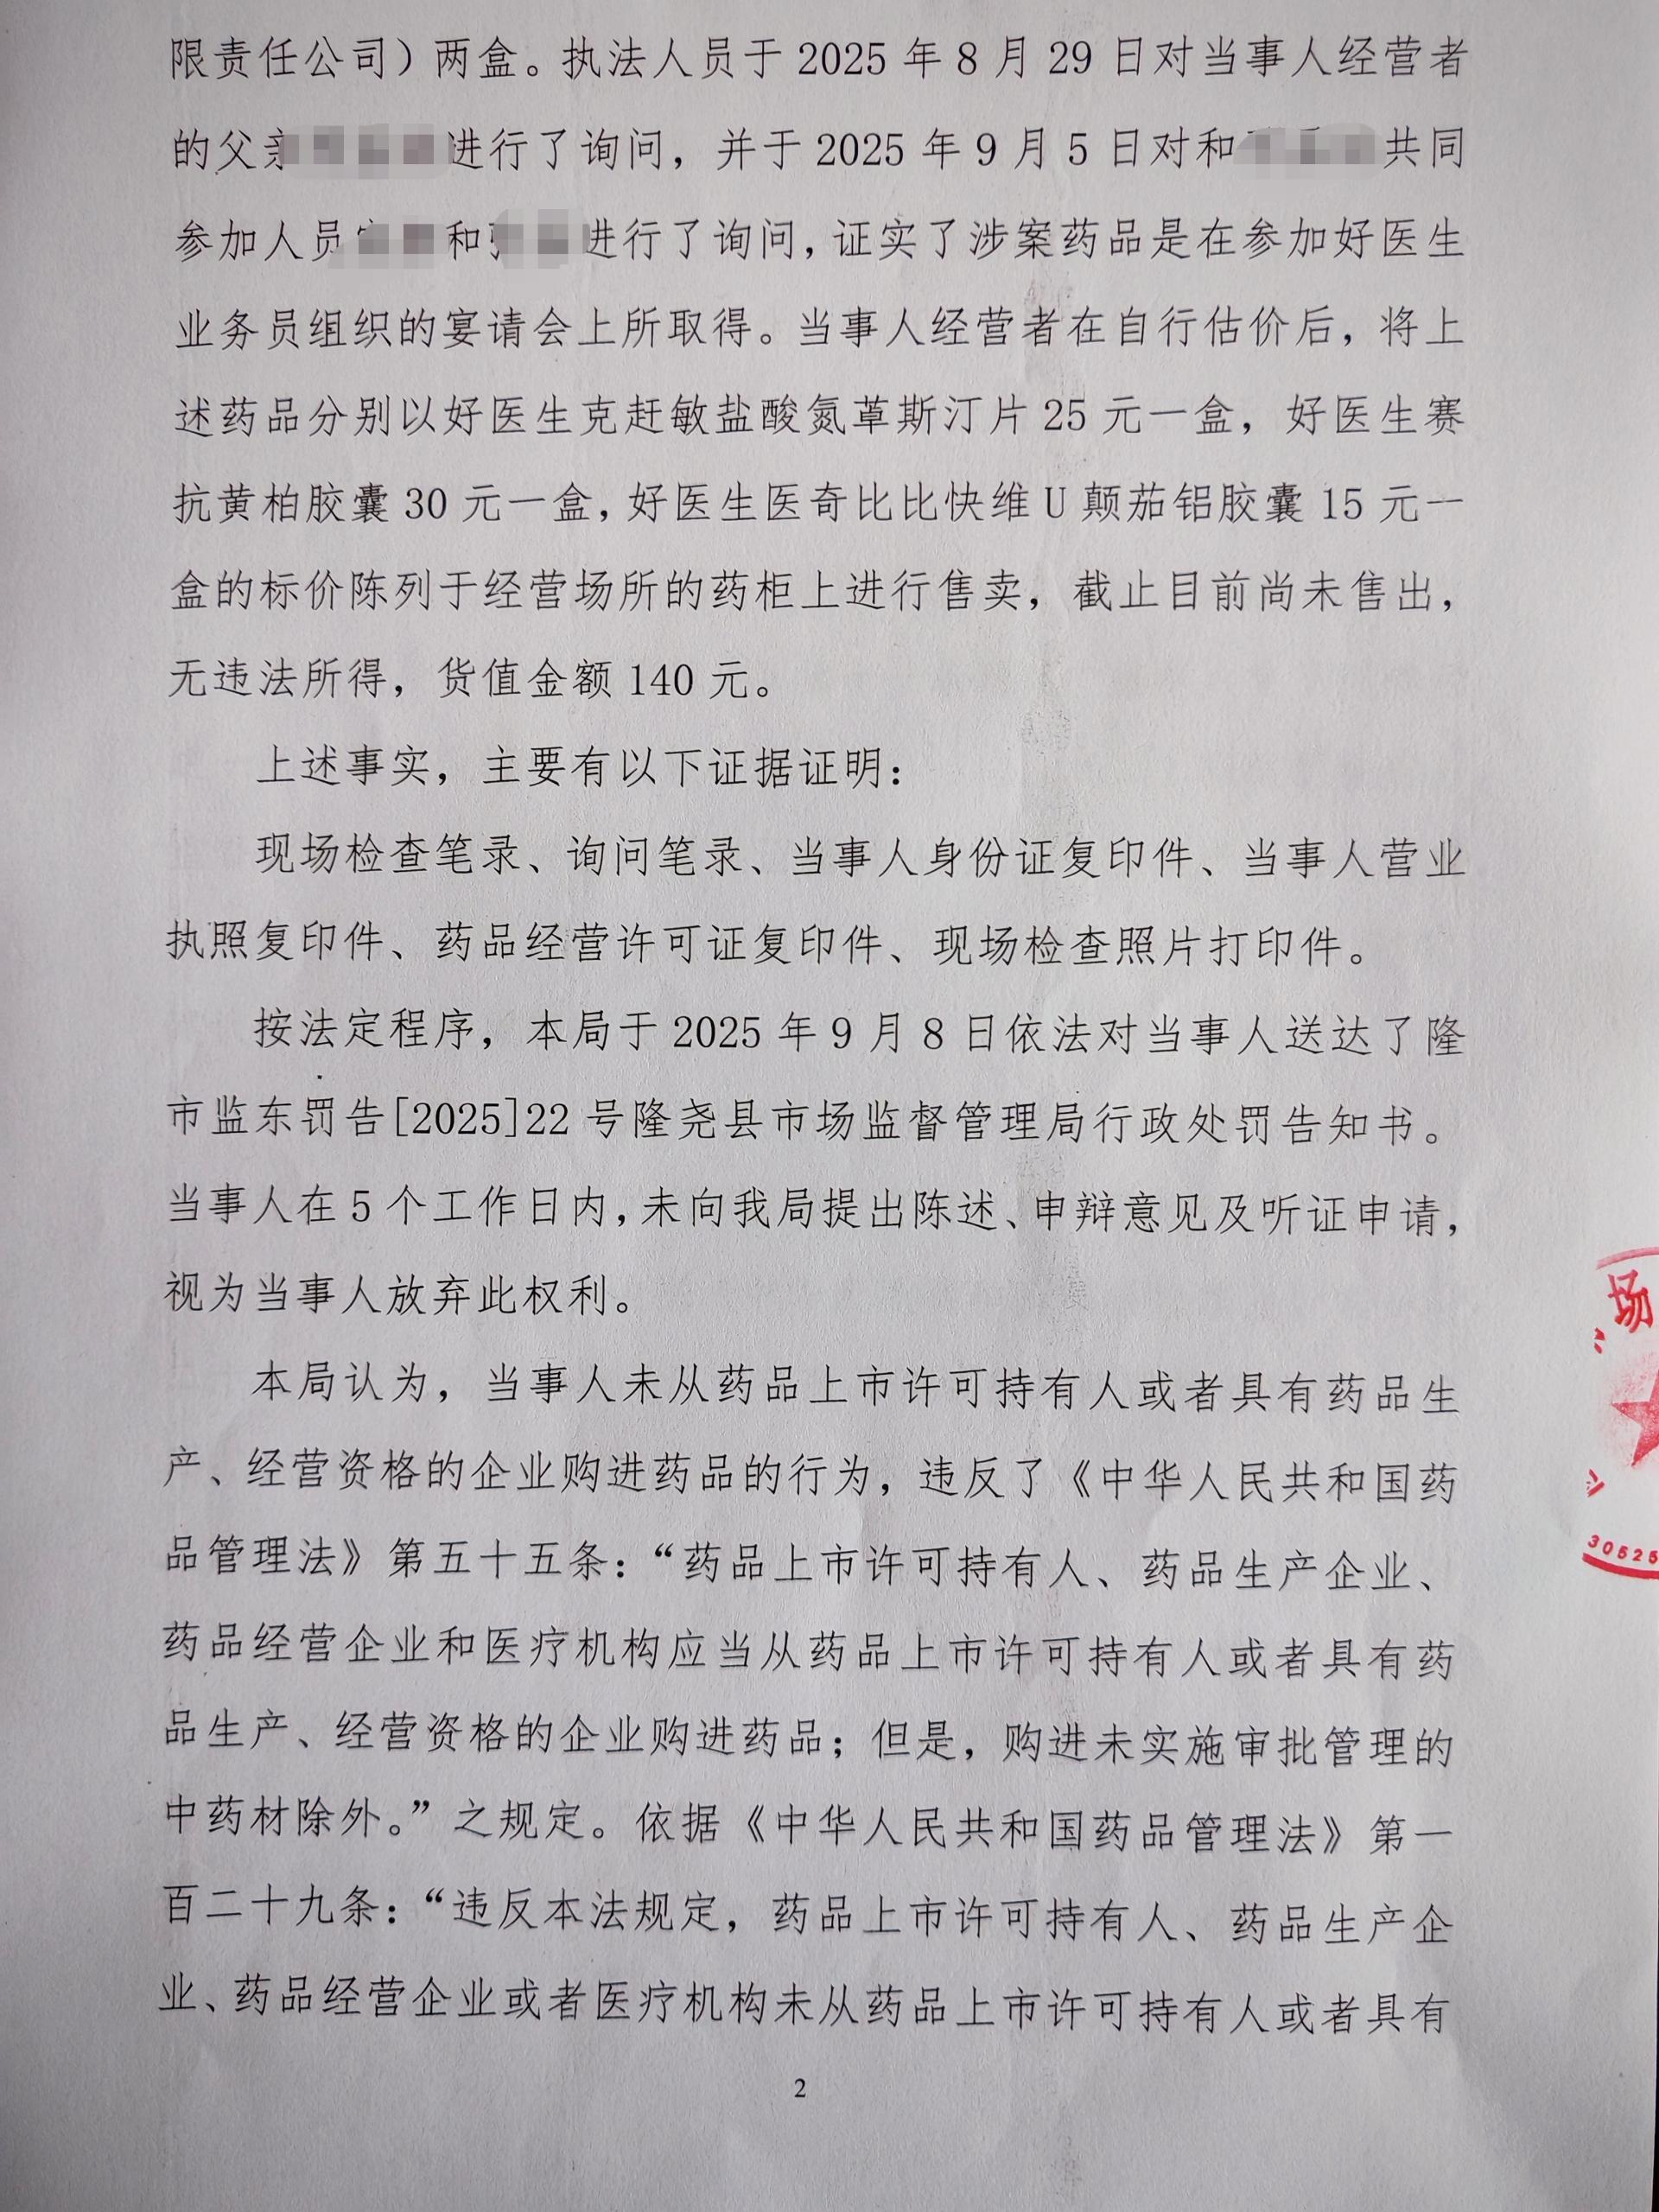 限责任公司）两盒。执法人员于 2025 年 8 月 29 日对当事人经营者
的父亲进行了询问，并于 2025 年 9 月 5 日对和共同
参加人员和进行了询问，证实了涉案药品是在参加好医生
业务员组织的宴请会上所取得。当事人经营者在自行估价后，将上
述药品分别以好医生克赶敏盐酸氮䓬斯汀片 25 元一盒，好医生赛
抗黄柏胶囊 30 元一盒，好医生医奇比比快维 U 颠茄铝胶囊 15 元一
盒的标价陈列于经营场所的药柜上进行售卖，截止目前尚未售出，
无违法所得，货值金额 140 元。
上述事实，主要有以下证据证明：
现场检查笔录、询问笔录、当事人身份证复印件、当事人营业
执照复印件、药品经营许可证复印件、现场检查照片打印件。
按法定程序，本局于 2025 年 9 月 8 日依法对当事人送达了隆
市监东罚告[2025]22 号隆尧县市场监督管理局行政处罚告知书。
当事人在 5 个工作日内，未向我局提出陈述、申辩意见及听证申请，
视为当事人放弃此权利。
本局认为，当事人未从药品上市许可持有人或者具有药品生
产、经营资格的企业购进药品的行为，违反了《中华人民共和国药
品管理法》第五十五条：“药品上市许可持有人、药品生产企业、
药品经营企业和医疗机构应当从药品上市许可持有人或者具有药
品生产、经营资格的企业购进药品；但是，购进未实施审批管理的
中药材除外。”之规定。依据《中华人民共和国药品管理法》第一
百二十九条：“违反本法规定，药品上市许可持有人、药品生产企
业、药品经营企业或者医疗机构未从药品上市许可持有人或者具有
2
场
30525